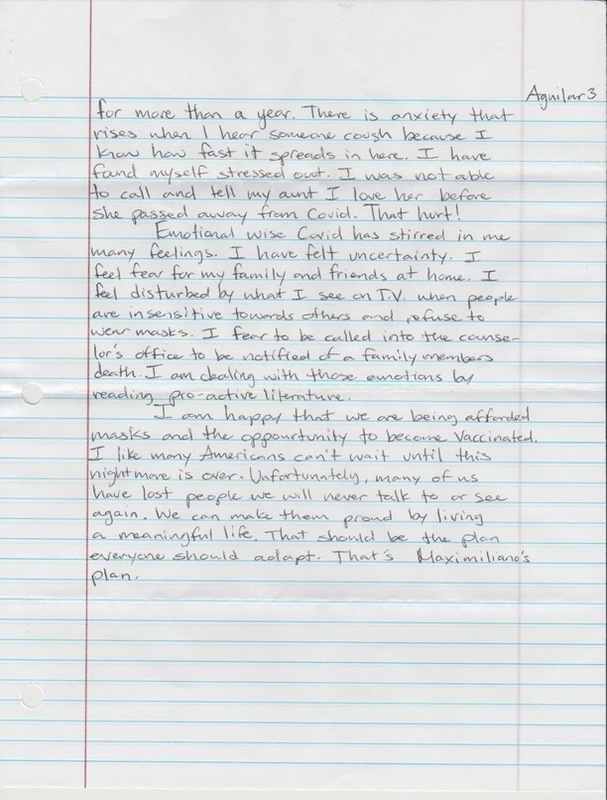 Aguilar 3
for more than a year. There is anxiety that
rises when I hear someone cough because I
know how fast it spreads in here. I have
fand myself stressed out. I was not able
to call and tell my aunt I love her before
she passed away from Covid. That hurt!
Emotional wise Covid has stirred in me
many feelings. I have felt uncertainty. I
feel fear for my family and friends at home. I
feel disturbed by what I see on T.V. when people
are insensitive towards others and refuse to
wear masks. I fear to be called into the counse-
lor's office to be notified of a family members
death. I am dealing with those emotions by
reading pro-active literature.
I am happy that we are being afforded
masks and the opportunity to become Vaccinated.
I like many Americans can't wait until this
nightmare is over. Unfortunately, many of us
have lost people we will never talk to or see
again. We can make them proud by living
a meaningful life. That should be the plan
everyone should adapt. That's Maximiliano's
plan.